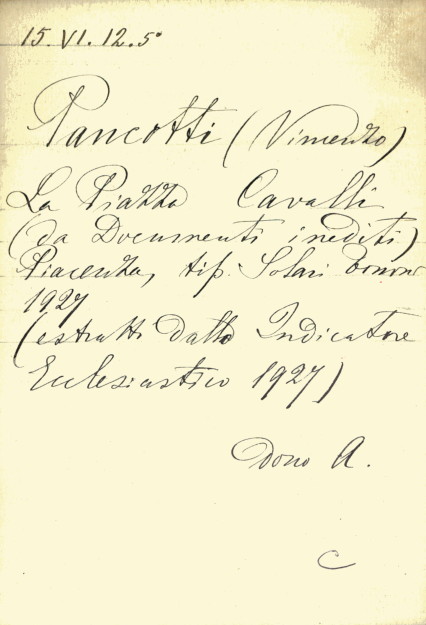 15. VI. 12. 5°
Pancotti (Vincenzo)
La Piazza Cavalli
(da Documenti inediti)
Piacenza, tip. Solari
1927
(estratti dallo Indicatore
Ecclesiastico 1927)
Dono A.
C